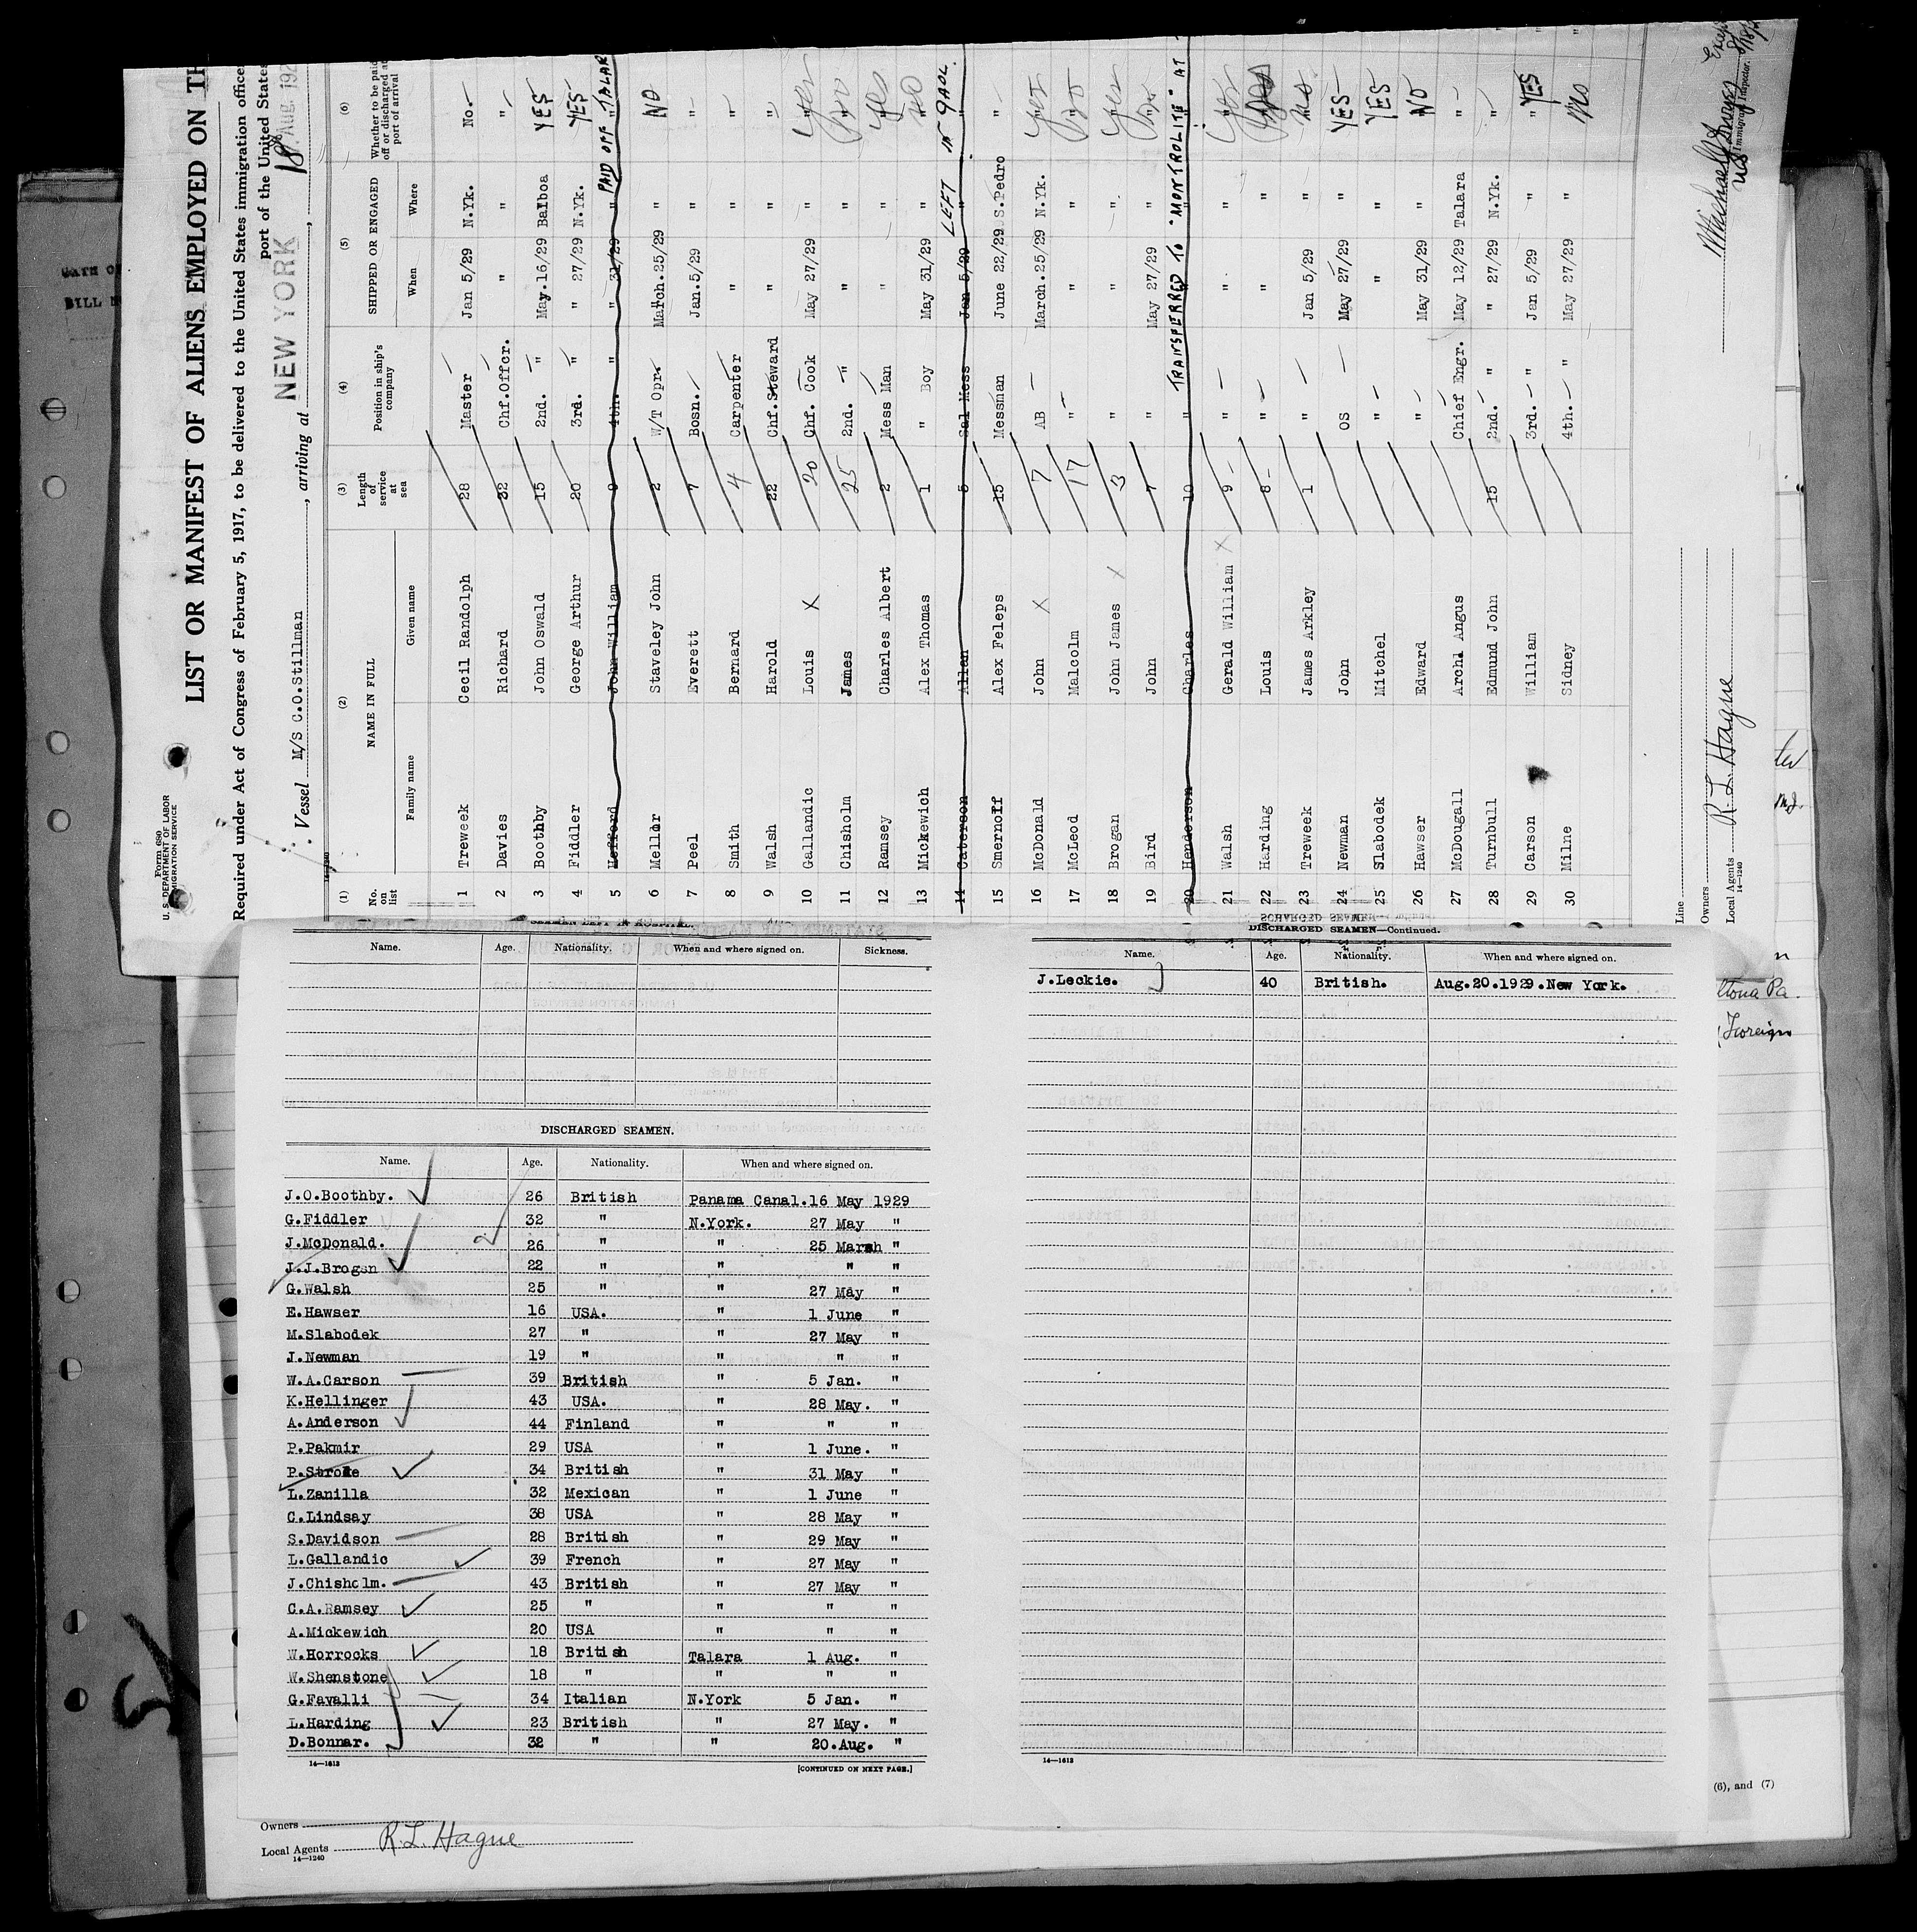 Form 680
U. S. DEPARTMENT OF LABOR
IMMIGRATION SERVICE
LIST OR MANIFEST OF ALIENS EMPLOYED ON TH
Required under Act of Congress of February 5, 1917, to be delivered to the United States immigration officer
port of the United States
Vessel M/S C.O.Stillman, arriving at NEW YORK 18 Aug. 192
(1) (2) (3) (4) (5) (6)
No. on list NAME IN FULL Length of service at sea Position in ship's company SHIPPED OR ENGAGED Whether to be paid off or discharged at port of arrival
Family name Given name When Where
1 Treweek Cecil Randolph 28 Master Jan 5/29 N.Yk. No.
2 Davies Richard 32 Chf.Offcr. " " "
3 Boothby John Oswald 15 2nd. " May.16/29 Balboa YES
4 Fiddler George Arthur 20 3rd. " " 27/29 N.Yk. YES
5 Hefford John William 9 4th. " " 31/29 " PAID OFF TALAR
6 Mellor Staveley John 2 W/T Opr. March.25/29 " NO
7 Peel Everett 7 Bosn. Jan.5/29 " "
8 Smith Bernard 4 Carpenter " " "
9 Walsh Harold 22 Chf.Steward " " "
10 Gallandic Louis X 20 Chf. Cook May 27/29 " Yes
11 Chisholm James 25 2nd. " " "
12 Ramsey Charles Albert 2 Mess Man " " Yes
13 Mickewich Alex Thomas 1 " Boy May 31/29 "
14 Caterson Allan 5 Sal Mess Jan 5/29 " LEFT IN GAOL.
15 Smernoff Alex Feleps 15 Messman June 22/29 S.Pedro "
16 McDonald John X 7 AB March.25/29 N.Yk. Yes
17 McLeod Malcolm 17 " " "
18 Brogan John James X 3 " " " Yes
19 Bird John 7 " May 27/29 "
20 Henderson Charles 10 " TRANSFERRED TO "MONTROLITE" AT
21 Walsh Gerald William X 9 " " " Yes
22 Harding Louis 8 " " "
23 Treweek James Arkley 1 " Jan 5/29 " No
24 Newman John OS May 27/29 " YES
25 Slabodek Mitchel " " " YES
26 Hawser Edward " May 31/29 " NO
27 McDougall Archl Angus Chief Engr. May 12/29 Talara "
28 Turnbull Edmund John 15 2nd. " " 27/29 N.Yk. "
29 Carson Willian 3rd. " Jan 5/29 " YES
30 Milne Sidney 4th. " May 27/29 " No
Immigrant Inspector.
Line
Owners
Local Agents R. L. Hague
14—1240
Name. Age. Nationality. When and where signed on. Sickness.
DISCHARGED SEAMEN.
Name. Age. Nationality. When and where signed on.
J.O.Boothby. 26 British Panama Canal.16 May 1929
G.Fiddler 32 " N.York. 27 May "
J.McDonald. 26 " " 25 Marsh "
J.J.Brogsn 22 " " " "
G.Walsh 25 " " 27 May "
E.Hawser 16 USA. " 1 June "
M.Slabodek 27 " " 27 May "
J.Newman 19 " " " "
W.A.Carson 39 British " 5 Jan. "
K.Hellinger 43 USA. " 28 May. "
A.Anderson 44 Finland " " "
P.Pakmir 29 USA " 1 June. "
P.Strode 34 British " 31 May "
L.Zanilla 32 Mexican " 1 June "
C.Lindsay 38 USA " 28 May "
S.Davidson 28 British " 29 May "
L.Gallandic 39 French " 27 May "
J.Chisholm. 43 British " 27 May "
C.A.Ramsey 25 " " " "
A.Mickewich 20 USA " " "
W.Horrocks 18 British Talara 1 Aug. "
W.Shenstone 18 " " " "
G.Favalli 34 Italian N.York 5 Jan. "
L.Harding 23 British " 27 May. "
D.Bonnar. 32 " " 20.Aug. "
14—1613
[CONTINUED ON NEXT PAGE.]
DISCHARGED SEAMEN—Continued.
Name. Age. Nationality. When and where signed on.
J.Leckie. 40 British. Aug.20.1929.New York.
14—1613
ltona Pa.
Foreign
(6), and (7)
Owners
Local Agents R. L. Hague
14—1240